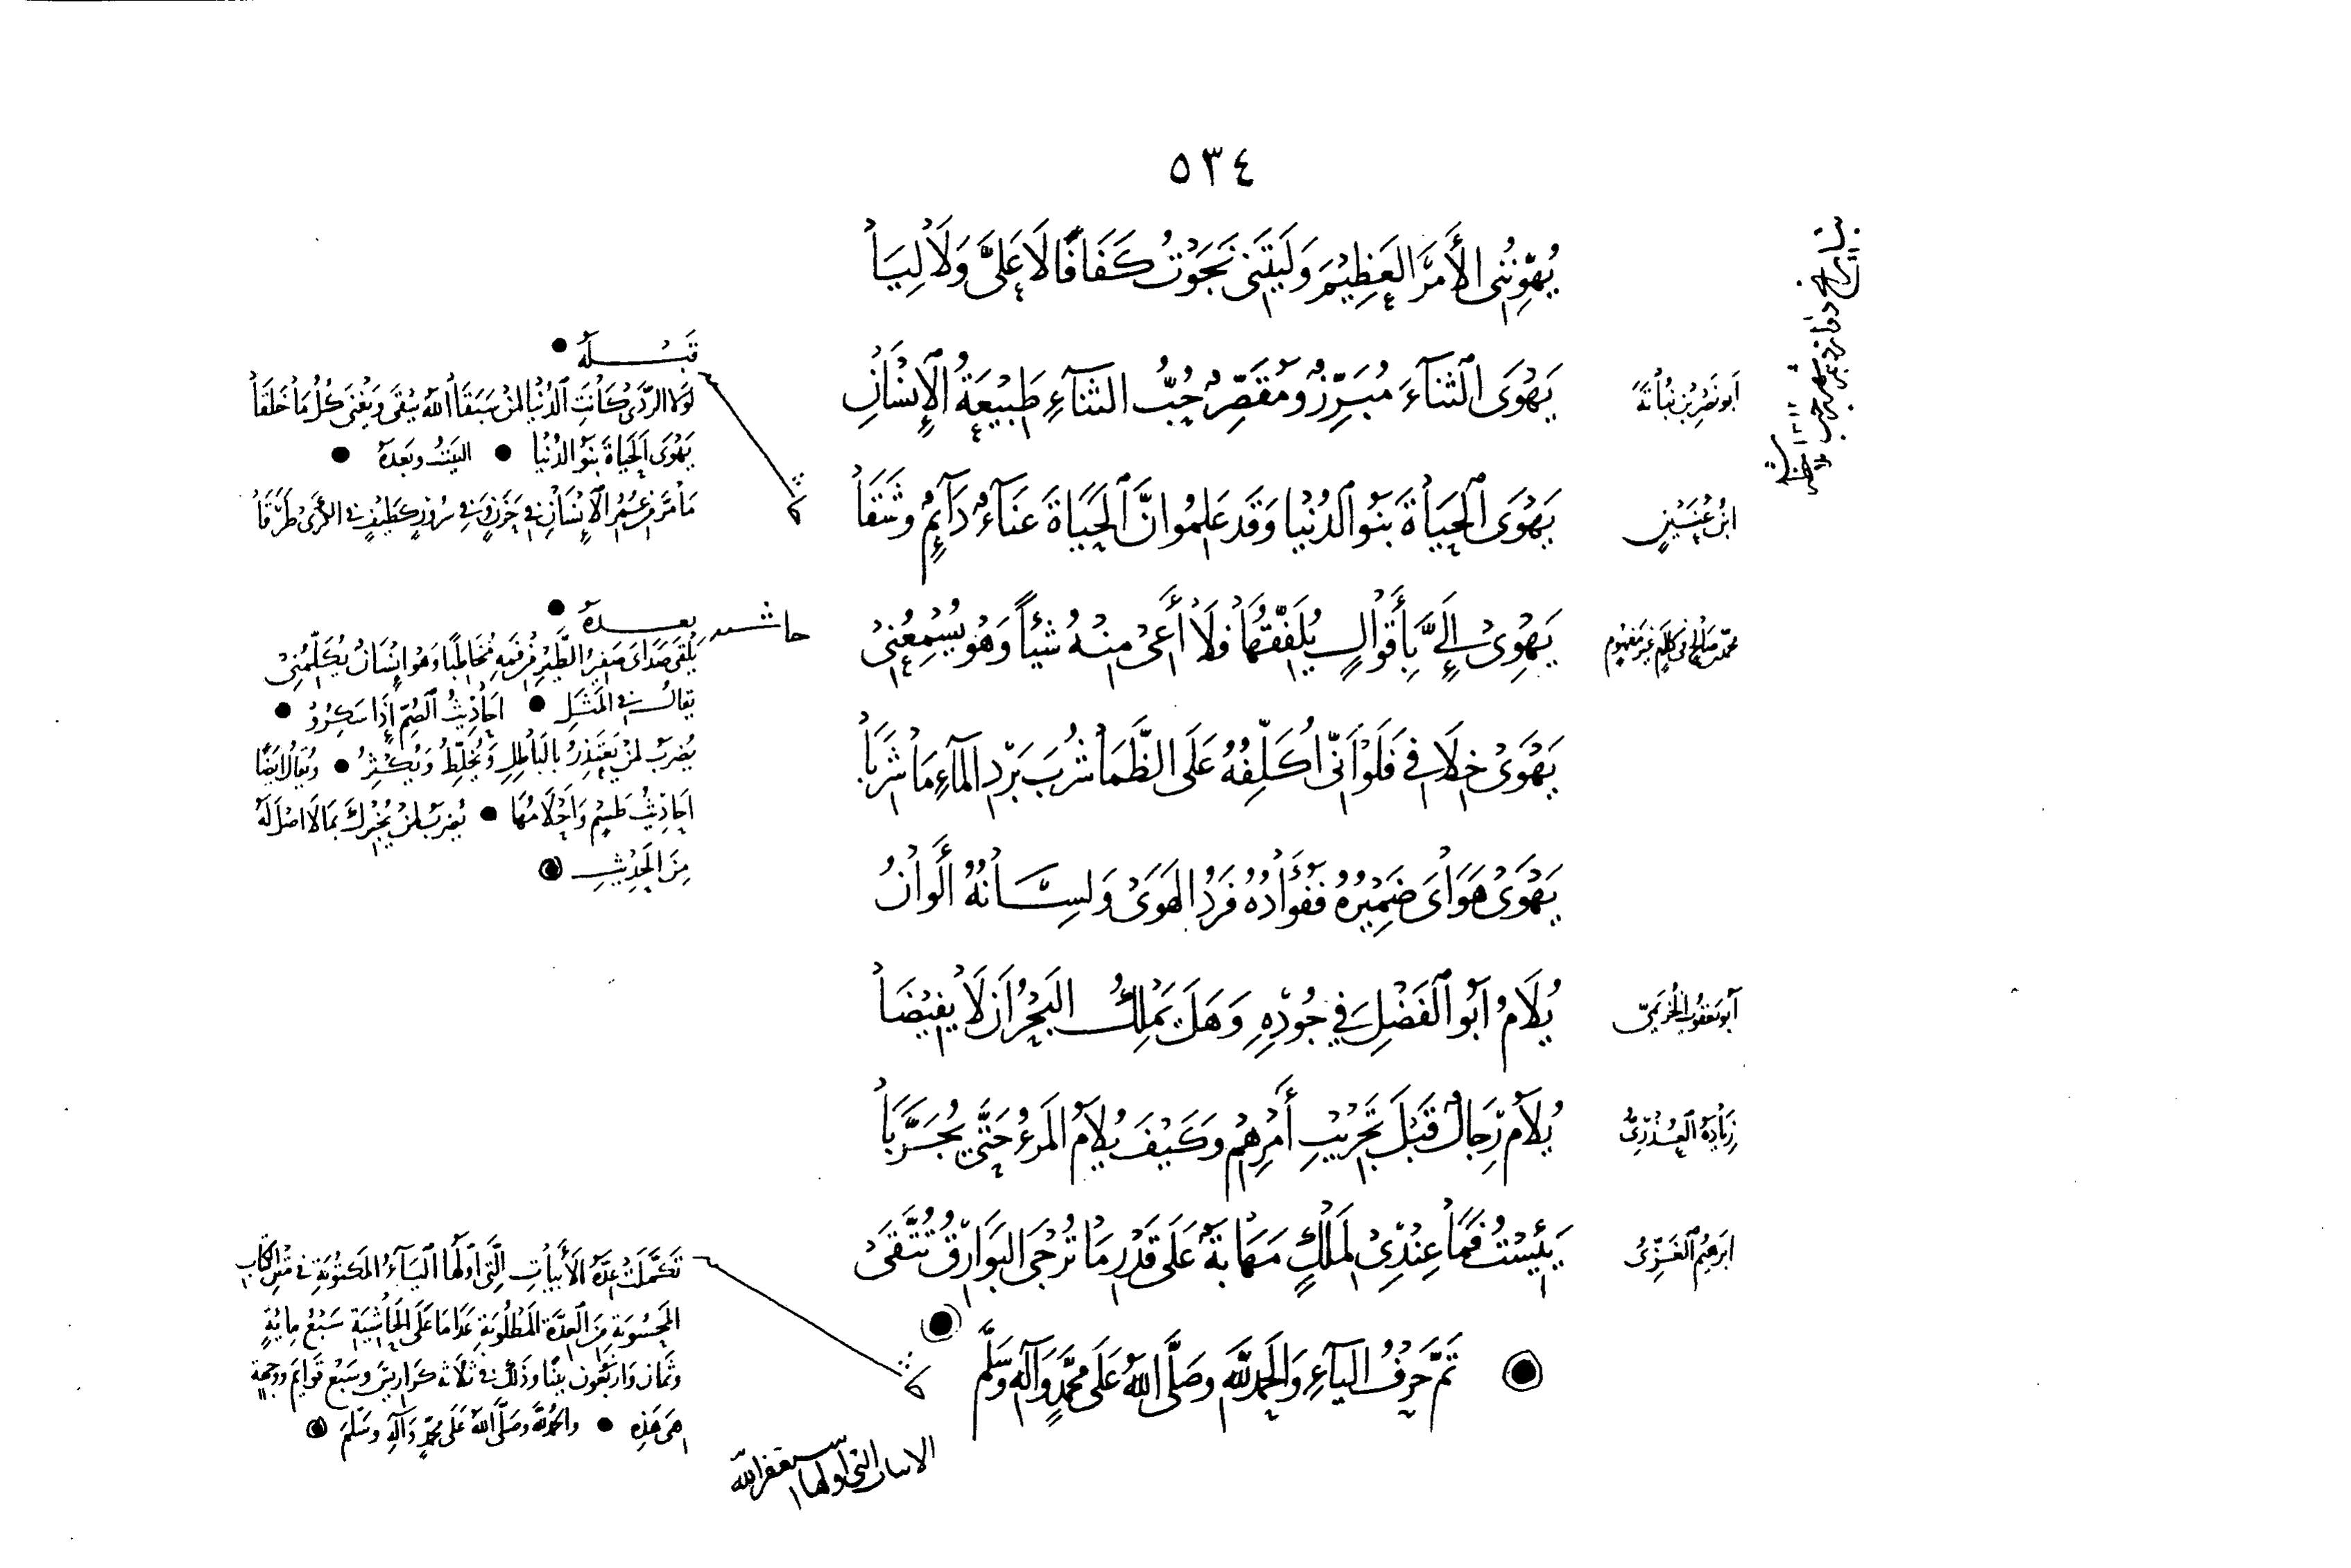 ٥٣٤
يُهَوِّنُنِي الأَمْرَ العَظِيْمَ وَلَيْتَنِي نَجَوْتُ كَفَافًا لَا عَلَيَّ وَلَا لِيَا
أبو نصر بن نباتة
يَهْوَى الثَّنَاءَ مُبَرِّزٌ وَمُقَصِّرٌ حُبُّ الثَّنَاءِ طَبِيْعَةُ الإِنْسَانِ
ابن عنين
يَهْوَى الْحَيَاةَ بَنُو الدُنْيَا وَقَد عَلِمُوا انَّ الْحَيَاةَ عَنَاءٌ دَآئِمٌ وشَقَا
محمد صالح في كلام غير مفهوم
يَهْوِى إِلَيَّ بِأَقْوَالٍ يُلَفِّقُهَا فَلَا أَعِي مِنْهُ شَيْئًا وَهُوَ يُسْمِعُنِي
يَهْوَى خِلَافِي فَلَوْ اَنِّي اُكَلِّفُهُ عَلَى الظَّمَا شُرْبَ بَرْدِ المَاءِ مَا شَرِبَا
يَهْوَى هَوَايَ ضَمِيْرُهُ فَفُؤَادُهُ فَرْدُ الهَوَى وَلِسَانُهُ أَلْوَانُ
أبو يعقوب الخريمي
يُلَامُ اَبُو الْفَضْلِ فِي جُوْدِهِ وَهَلْ يَمْلِكُ البَحْرُ اَنْ لَا يَفِيْضَا
زيادة العذري
يُلَامُ رِجَالٌ قَبْلَ تَجْرِيْبِ أَمْرِهِمْ وَكَيْفَ يُلَامُ المَرْءُ حَتَّى يُجَرَّبَا
ابرهيم الغزي
يَئِسْتُ فَمَا عِنْدِي لِمَلْكٍ مَهَابَةٌ عَلَى قَدْرِ مَا تُرْجَى البَوَارِقُ تُتَّقَى
تَمَّ حَرْفُ اليَاءِ وَالحَمْدُ لِلَّهِ وَصَلَّى اللَّهُ عَلَى مُحَمَّدٍ وَآلِهِ وَسَلَّم
قبله
لَولَا الرَّدَى كَانَتِ الدُنْيَا لِمَنْ سَبَقَا اللهُ يَبْقَى وَيَفْنَى كُلُّ مَا خَلَقَا
يَهْوَى الْحَيَاةَ بَنُو الدُنْيَا • البيت وبعده •
مَا مَرَّ مِنْ عُمُرِ الْإِنْسَانِ فِي حَزَنٍ وَفِي سُرُورٍ كَطَيْفٍ فِي الكَرَى طَرَقَا
حاشيه
بعده
يُلْقِي صَدَايَ صَفِيْرُ الطَّيْرِ مِنْ فَمِهِ مُخَاطِبًا وَهْوَ اِنْسَانٌ يُكَلِّمُنِي
يقال في المَثَلِ • اَحَادِيْثُ الصُّمِّ إِذَا سَكِرُوْ •
يُضرَبُ لِمَنْ يَعْتَذِرُ بالبَاطِلِ وَيُخَلِّطُ وَيُكْثِرُ • وَيُقَالُ اَيْضًا
اَحَادِيْثُ طَسْمٍ وَاَحْلَامُهَا • يُضرَبُ لِمَنْ يُخْبِرُكَ بِمَا لَا اصْلَ لَهُ
مِنَ الحَدِيْثِ
تَكَمَّلَتْ عِدَّةُ الأَبْيَاتِ الَّتِي اَوَّلُهَا اليَاءُ المَكتُوْبَةِ فِي مَتْنِ الكِتَابِ
المَحْسُوْبَةِ مِنَ العِدَّةِ المَطْلُوْبَةِ عَدَا مَا عَلَى الْحَاشِيَةِ سَبْعُ مِايَةٍ
وثَمَانٍ وَارْبَعُون بَيْتًا وَذَلِكَ فِي ثَلَاثَة كَرَارِيْسَ وَسَبْع قَوَايِمَ وَوجْهَةٍ
هِيَ هَذِهِ • والحمدُ لله وَصَلَّى اللهُ عَلَى مُحَمَّدٍ وَآلِهِ وَسَلَّمَ
الابيات التي اولها استغفر الله